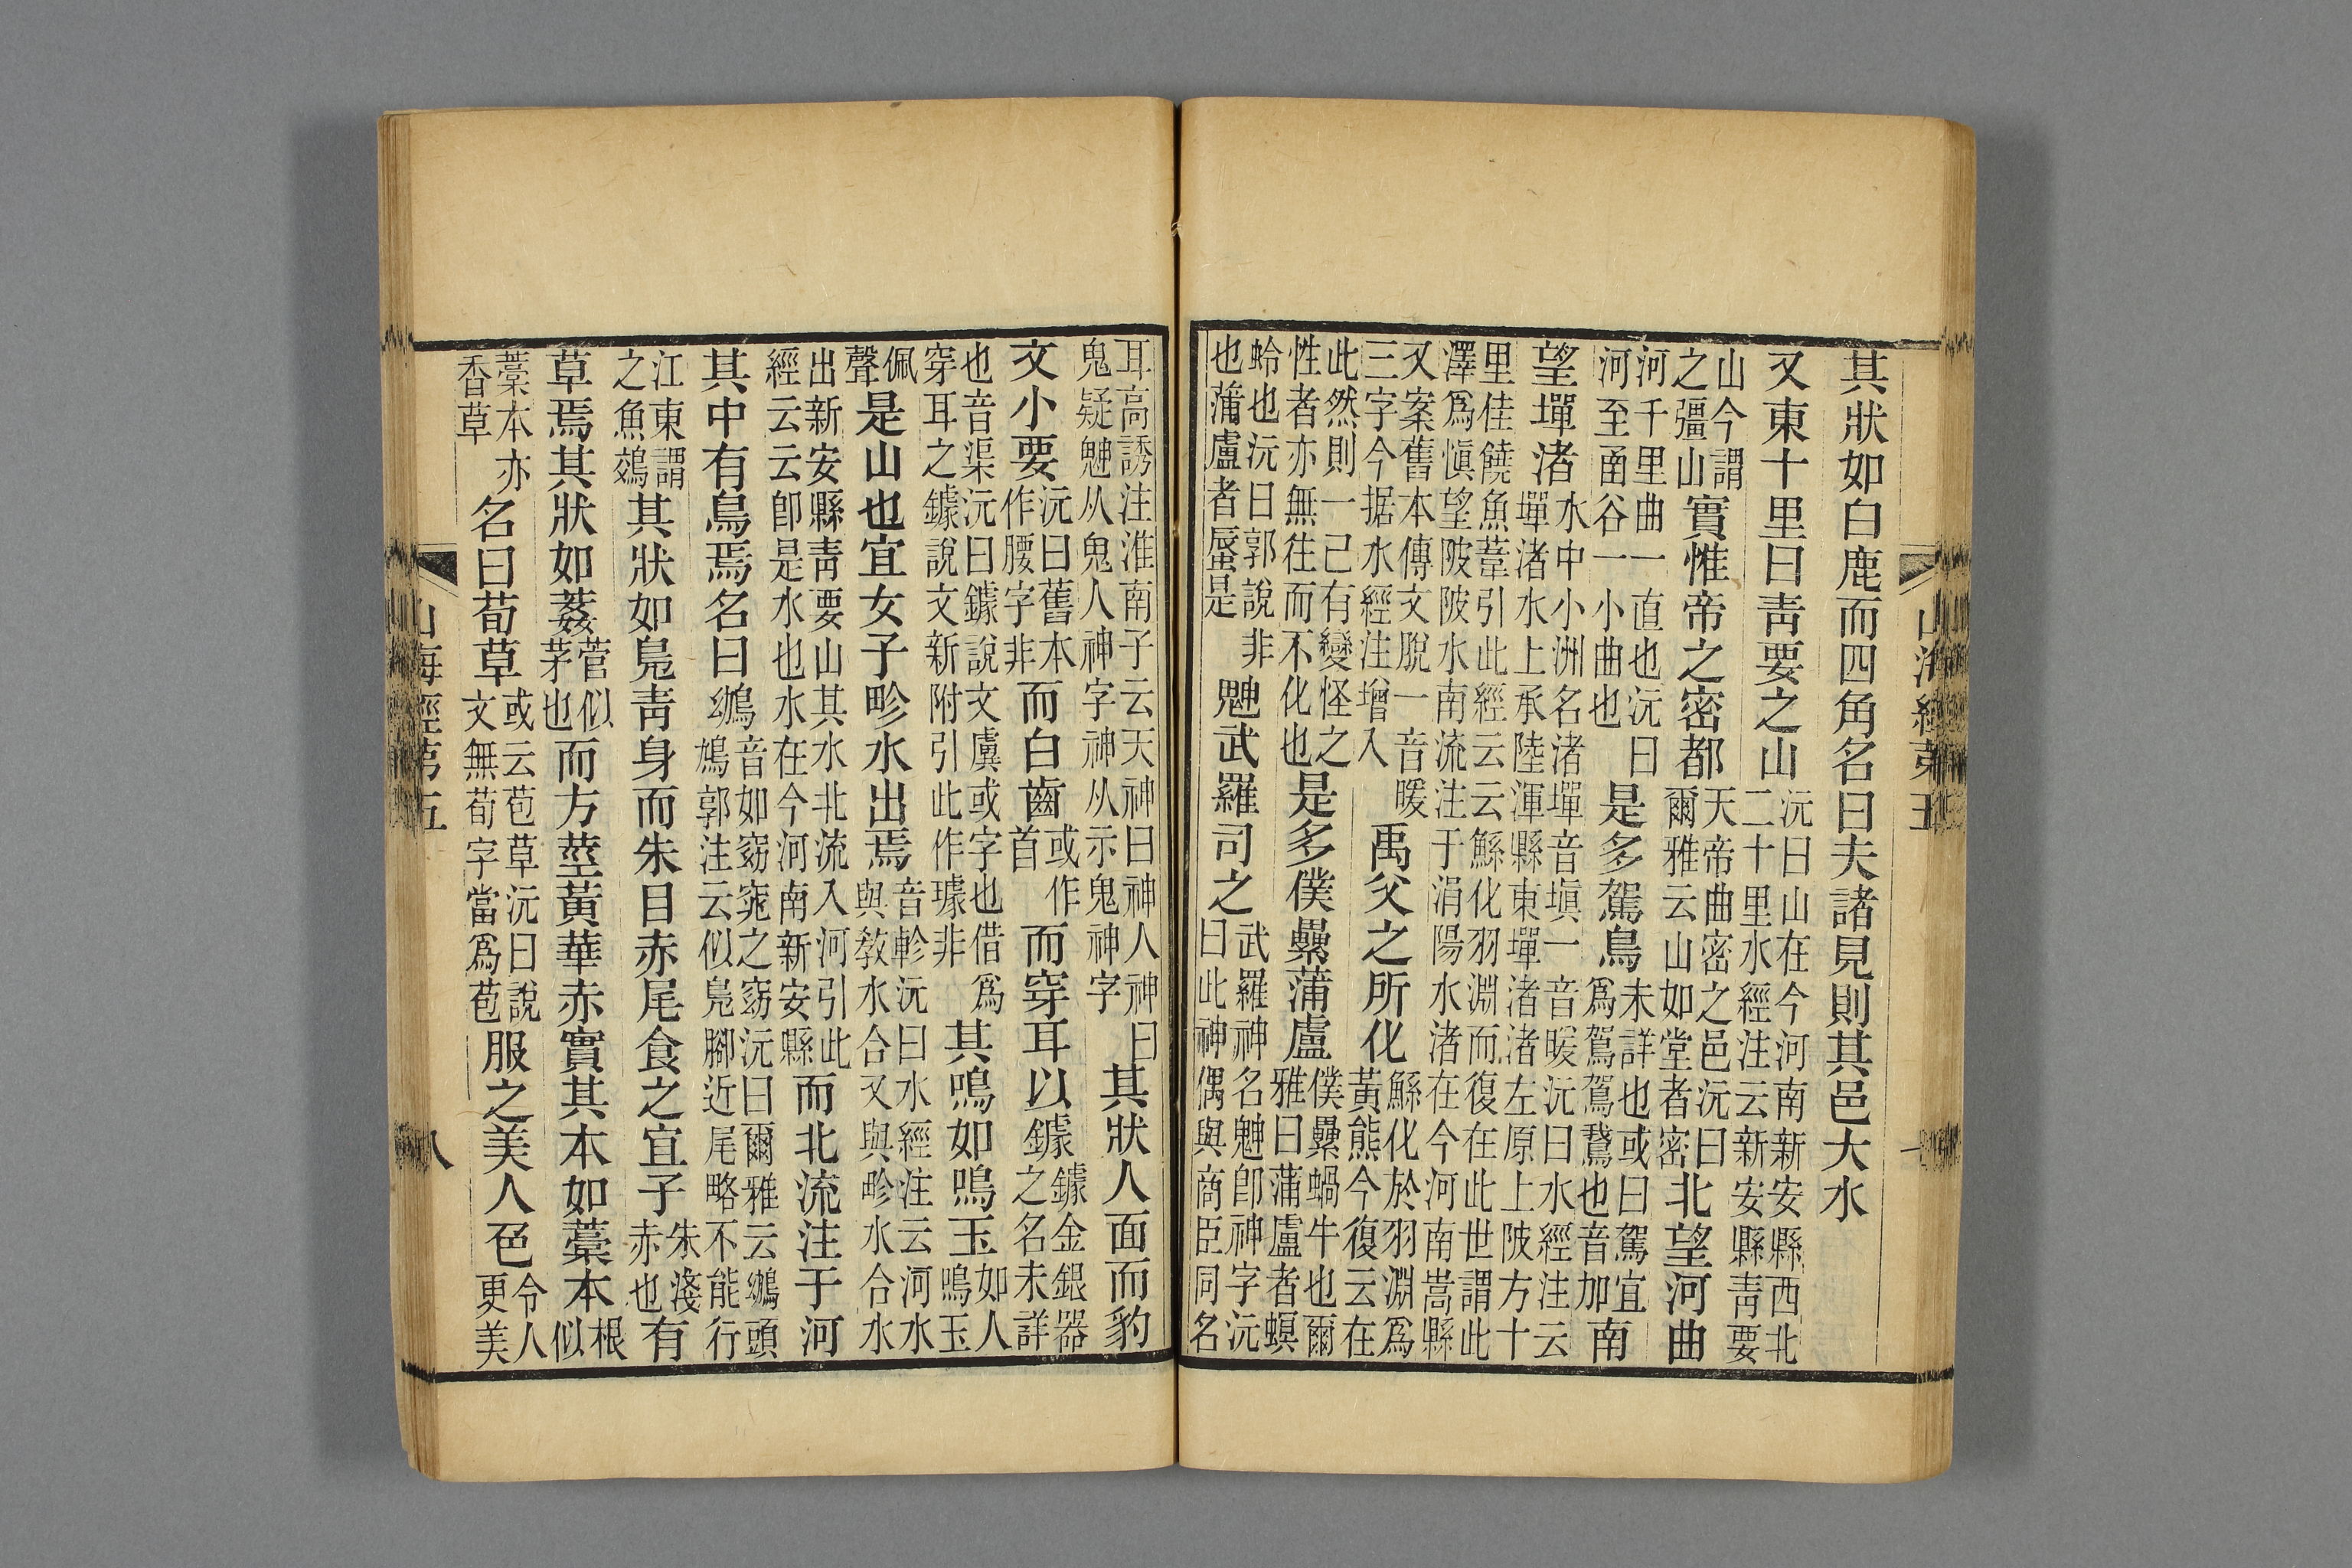 山海經第五
其狀如白鹿而四角名曰夫諸見則其邑大水
又東十里曰青要之山沅曰山在今河南新安縣西北二十里水經注云新安縣青要
山今謂之彊山實惟帝之密都天帝曲密之邑沅曰爾雅云山如堂者密北望河曲
河千里曲一直也沅曰河至函谷一小曲也是多駕鳥未詳也或曰駕宜爲駕駕鵞也音加南
望墠渚水中小洲名渚墠音塡一音暖沅曰水經注云墠渚水上承陸渾縣東墠渚渚左原上陂方十
里佳饒魚葦引此經云云鯀化羽淵而復在此世謂此澤爲愼望陂陂水南流注于涓陽水渚在今河南嵩縣
又案舊本傳文脫一音暖三字今据水經注增入禹父之所化鯀化於羽淵爲黃熊今復云在
此然則一己有變怪之性者亦無往而不化也是多僕纍蒲盧僕纍蝸牛也爾雅曰蒲盧者螟
蛉也沅曰郭說非也蒲盧者蜃是䰠武羅司之武羅神名䰠卽神字沅曰此神偶與商臣同名
耳高誘注淮南子云天神曰神人神曰鬼疑䰠从鬼人神字神从示鬼神字其狀人面而豹
文小要沅曰舊本作腰字非而白齒或作首而穿耳以鐻鐻金銀器之名未詳
也音渠沅曰鐻說文虡或字也借爲穿耳之鐻說文新附引此作璩非其鳴如鳴玉如人鳴玉
佩聲是山也宜女子畛水出焉音軫沅曰水經注云河水與敎水合又與畛水合水
出新安縣靑要山其水北流入河引此經云云卽是水也水在今河南新安縣而北流注于河
其中有鳥焉名曰鴢音如窈窕之窈沅曰爾雅云鴢頭鳭郭注云似鳧腳近尾略不能行
江東謂之魚鵁其狀如鳧靑身而朱目赤尾食之宜子朱淺赤也有
草焉其狀如葌菅似茅也而方莖黃華赤實其本如藁本根似
藁本亦香草名曰荀草或云苞草沅曰說文無荀字當爲苞服之美人色令人更美
山海經第五 八